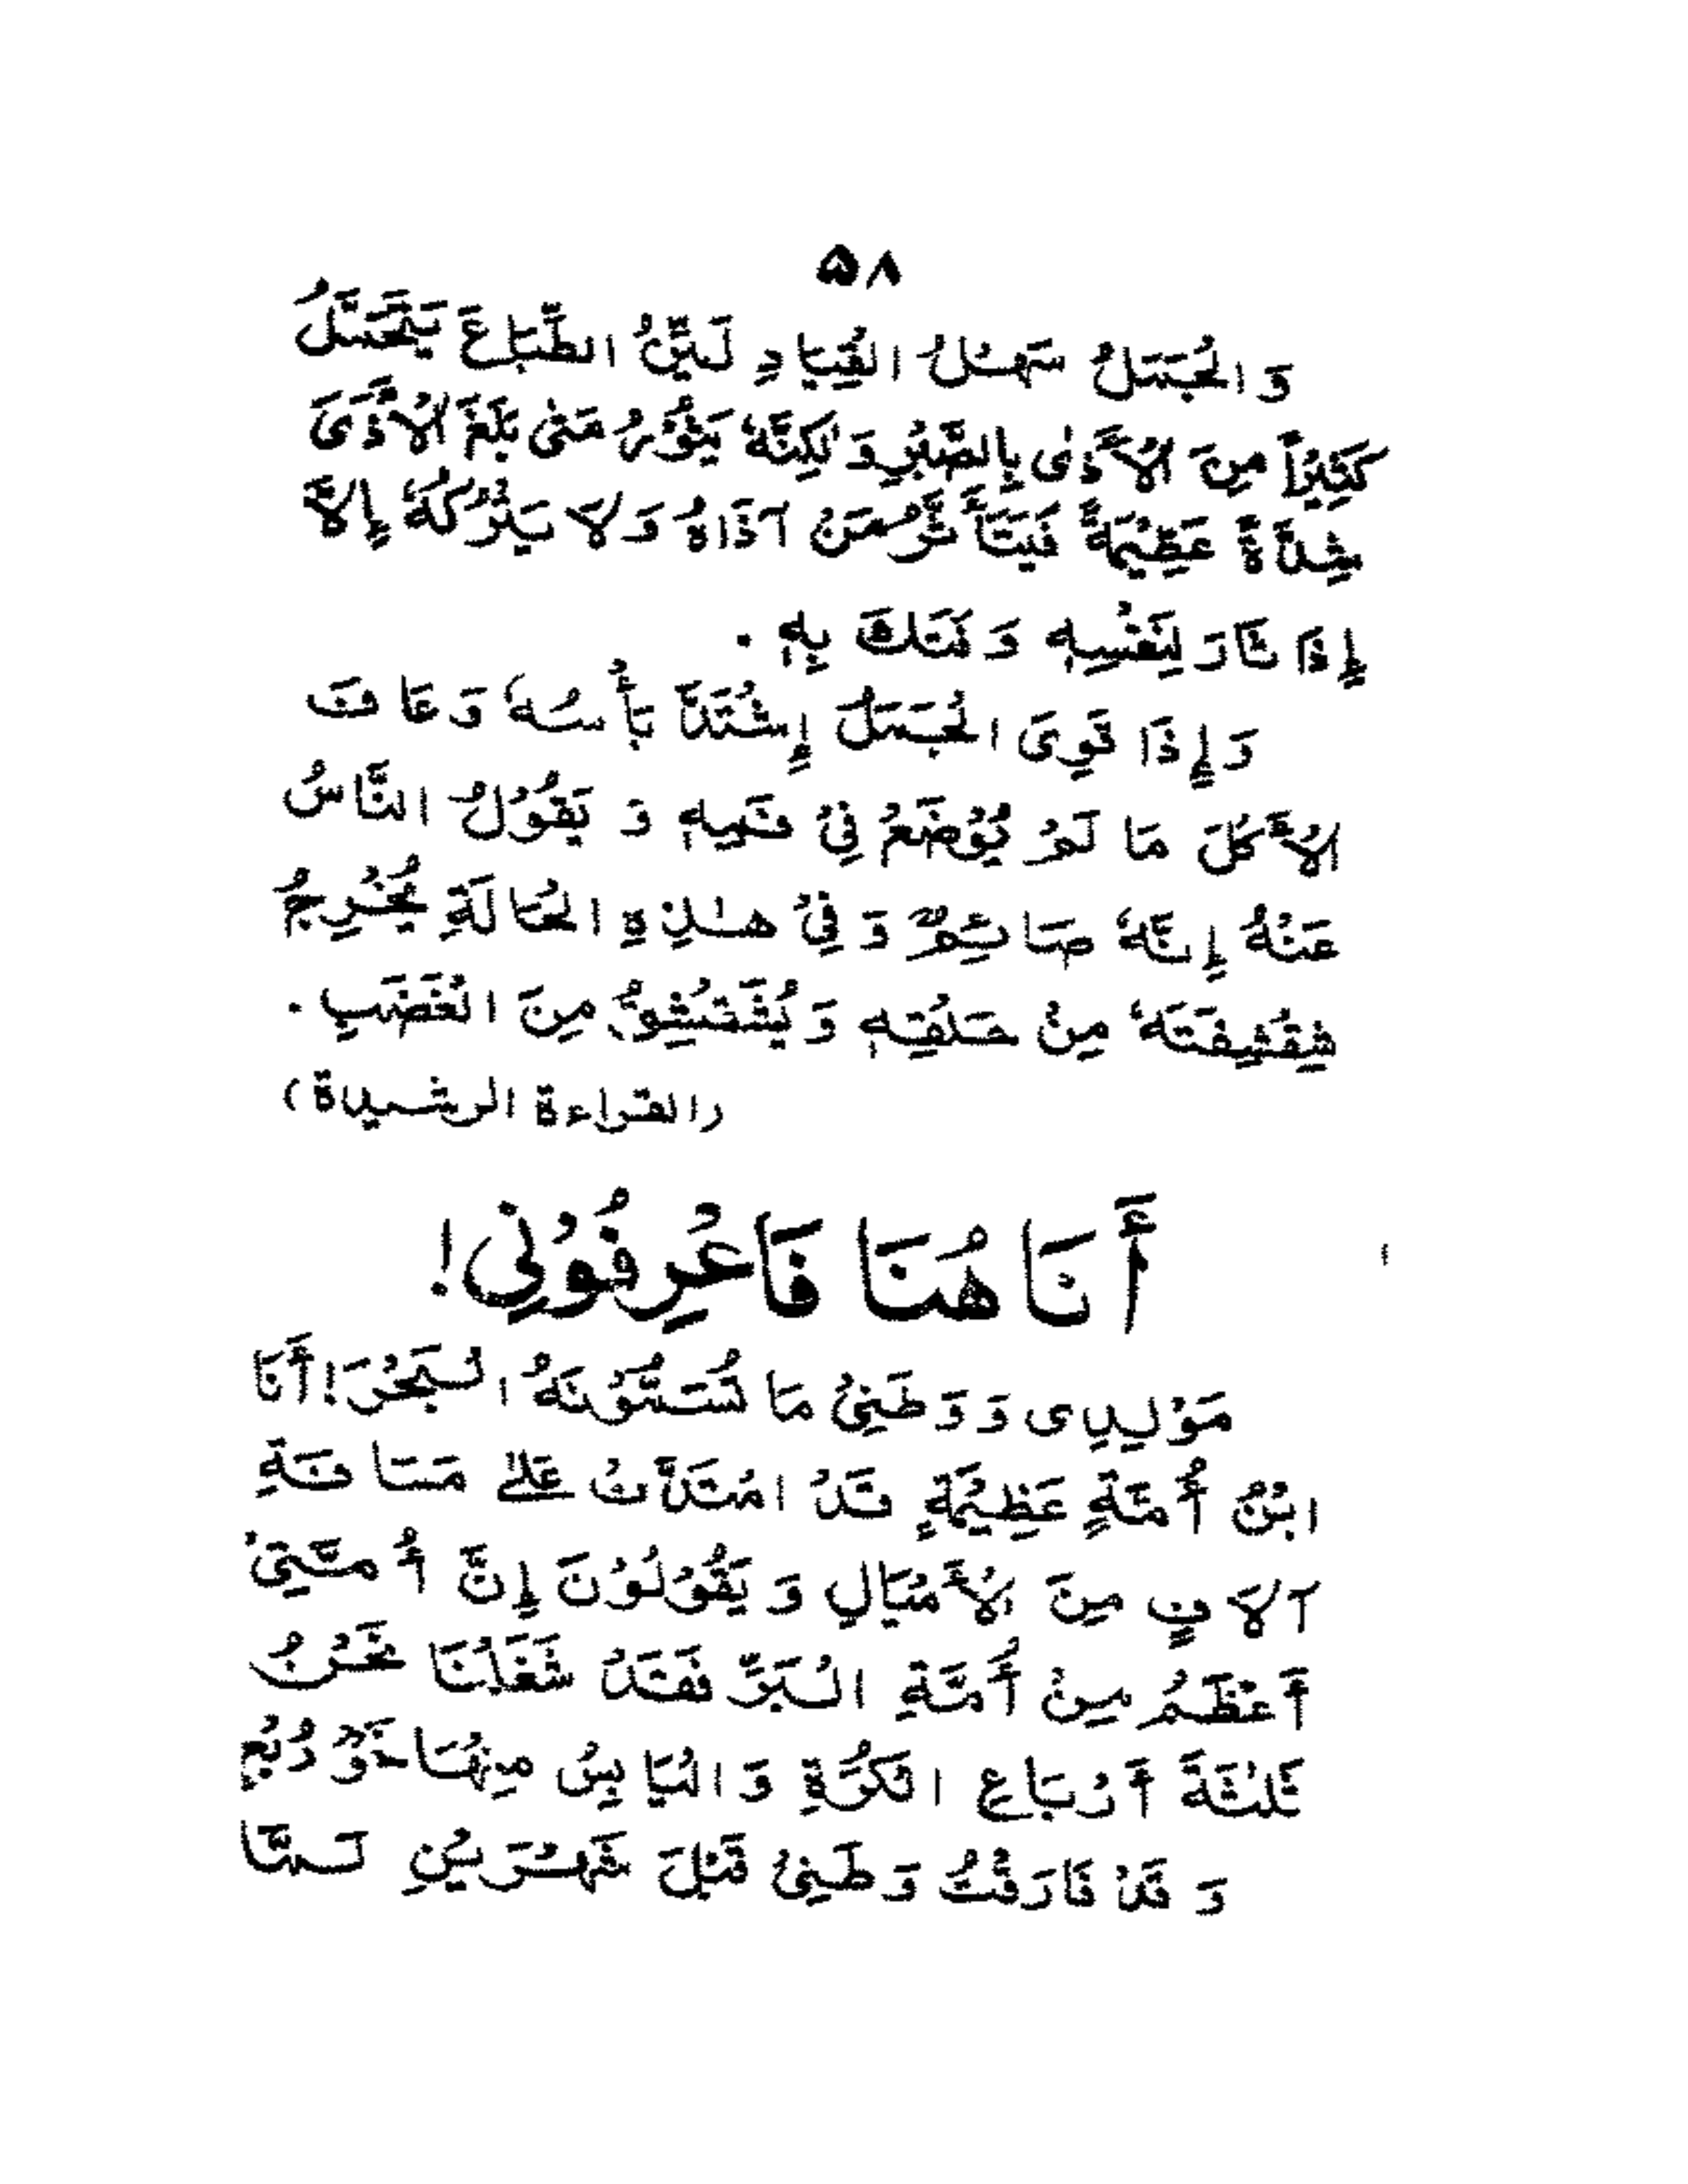 ۵۸
وَالْجَمَلُ سَهْلُ الْقِيَادِ لَيِّنُ الطِّبَاعَ يَتَحَمَّلُ
كَثِيْراً مِنَ الْأَذٰى بِالصَّبْرِ وَلٰكِنَّهٗ يَثُوْرُ مَتٰى بَلَغَ الْأَذَى
شِدَّةً عَظِيْمَةً فَيَتَأَثَّرُ مَنْ آذَاهُ وَلَا يَتْرُكُهٗ إِلَّا
إِذَا ثَارَ لِنَفْسِهٖ وَفَتَكَ بِهٖ .
وَإِذَا قَوِىَ الْجَمَلُ إِشْتَدَّ بَأْسُهٗ وَعَافَ
الْأَكْلَ مَا لَمْ يُوْضَعْ فِيْ فَمِهٖ وَ يَقُوْلُ النَّاسُ
عَنْهُ إِنَّهٗ صَائِمٌ وَفِيْ هٰذِهِ الْحَالَةِ يُخْرِجُ
شِقْشِقَتَهٗ مِنْ حَلْقِهٖ وَيُشَقْشِقُ مِنَ الْغَضَبِ .
(القراءة الرشيدة)
أَنَا هُنَا فَاعْرِفُوْنِي!
مَوْلِدِى وَوَطَنِيْ مَا تُسَمُّوْنَهُ الْبَحْرَ! أَنَا
ابْنُ أُمَّةٍ عَظِيْمَةٍ قَدْ امْتَدَّتْ عَلٰى مَسَافَةِ
آلَافٍ مِنَ الْأَمْيَالِ وَيَقُوْلُوْنَ إِنَّ أُمَّتِيْ
أَعْظَمُ مِنْ أُمَّةِ الْبَرِّ فَقَدْ شَغَلْنَا نَحْنُ
ثَلٰثَةَ أَرْبَاعِ الْكُرَةِ وَالْيَابِسُ مِنْهَا نَحْوُ رُبْعٍ
وَقَدْ فَارَقْتُ وَطَنِيْ قَبْلَ شَهْرَيْنِ لَمَّا